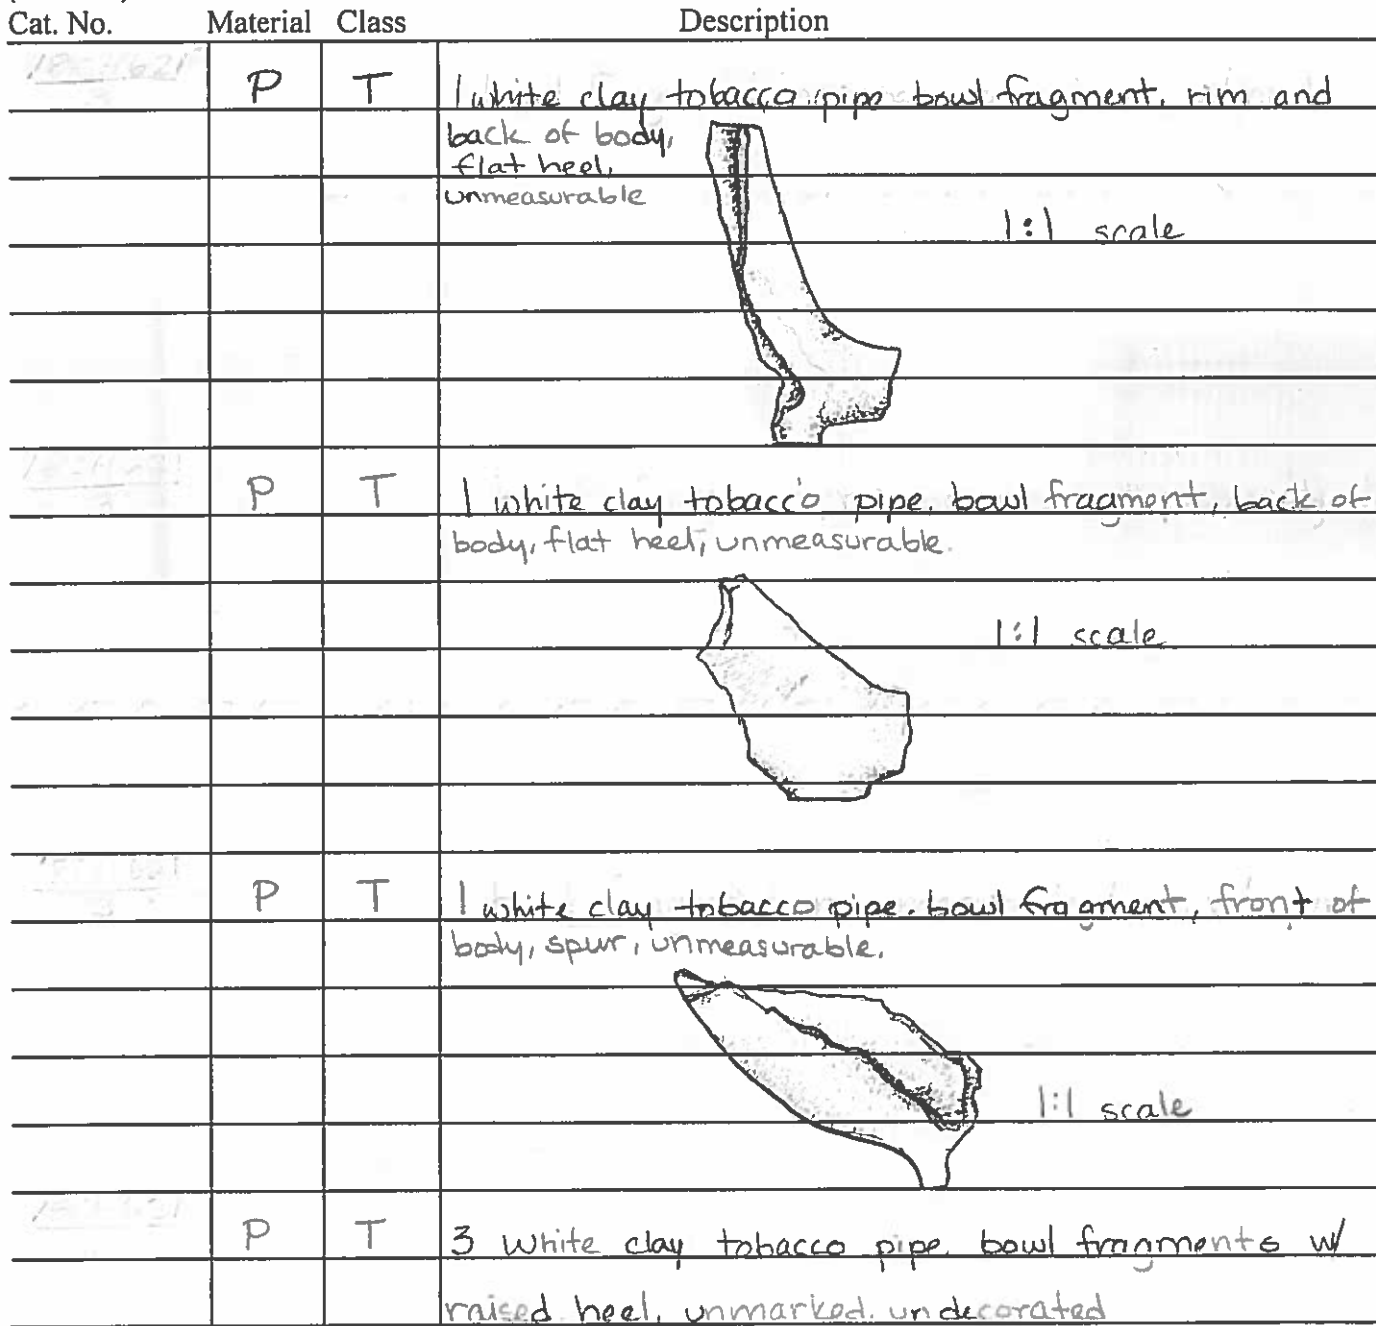 Cat. No. Material Class Description
P T 1 white clay tobacco pipe bowl fragment, rim and
back of body,
flat heel,
unmeasurable
1:1 scale
P T 1 white clay tobacco pipe bowl fragment, back of
body, flat heel, unmeasurable.
1:1 scale
P T 1 white clay tobacco pipe bowl fragment, front of
body, spur, unmeasurable.
1:1 scale
P T 3 white clay tobacco pipe bowl fragments w/
raised heel, unmarked, undecorated